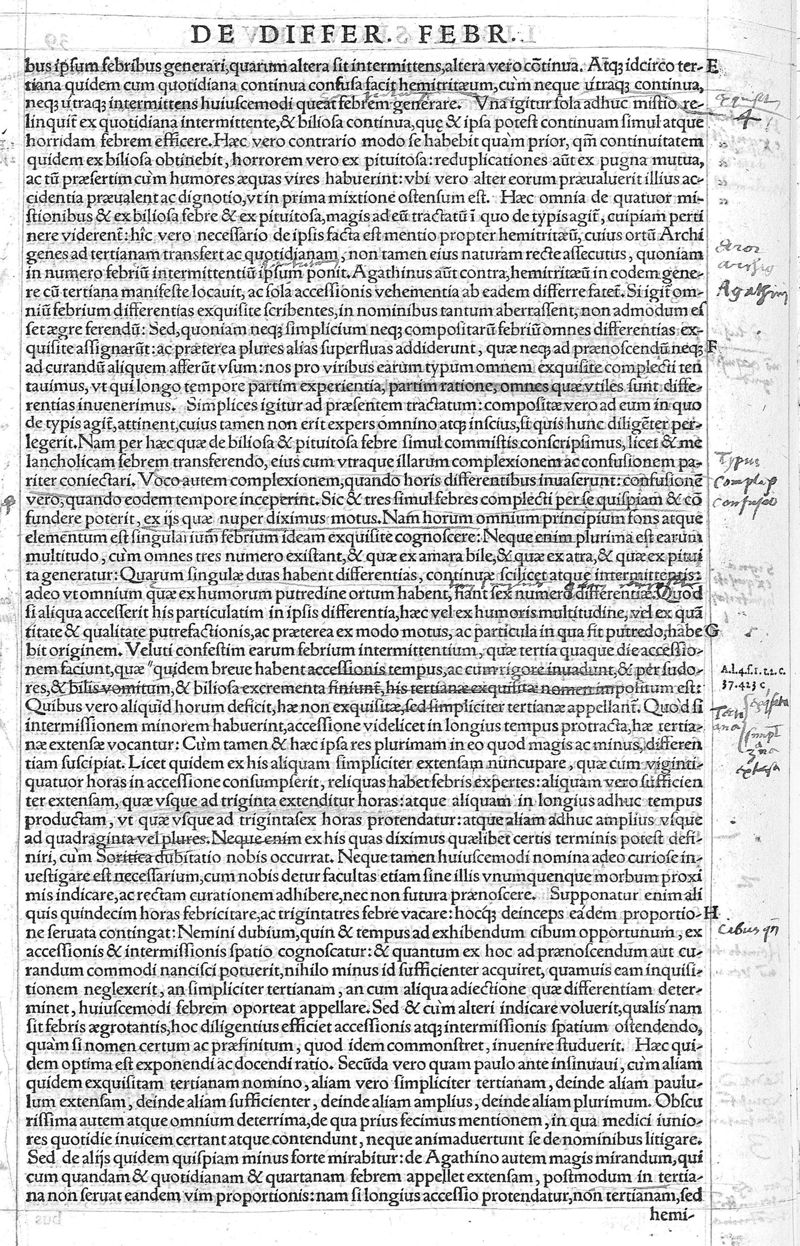 DE DIFFER. FEBR.
bus ipsum febribus generari,quarum altera sit intermittens,altera vero cōtinua. Atq; idcirco ter- E
tiana quidem cum quotidiana continua confusa facit hemitritæum,cùm neque vtraq; continua,
neq; vtraq; intermittens huiuscemodi queat febrem generare. Vna igitur sola adhuc mistio re-
linquit̄ ex quotidiana intermittente,& biliosa continua,quę & ipsa potest continuam simul atque
horridam febrem efficere. Hæc vero contrario modo se habebit quàm prior, qm̄ continuitatem
quidem ex biliosa obtinebit, horrorem vero ex pituitosa: reduplicationes aūt ex pugna mutua,
ac tū præsertim cùm humores æquas vires habuerint: vbi vero alter eorum præualuerit illius ac-
cidentia præualent ac dignotio,vt in prima mixtione ostensum est. Hæc omnia de quatuor mi-
stionibus & ex biliosa febre & ex pituitosa,magis ad eū tractatū ī quo de typis agit̄, cuipiam perti
nere viderent̄: hîc vero necessario de ipsis facta est mentio propter hemitritæū, cuius ortū Archi
genes ad tertianam transfert ac quotidianam, non tamen eius naturam recte assecutus, quoniam
in numero febriū intermittentiū ipsum ponit. Agathinus aūt contra,hemitritæū in eodem gene-
re cū tertiana manifeste locauit, ac sola accessionis vehementia ab eadem differre fatet̄. Si igit̄ om-
niū febrium differentias exquisite scribentes,in nominibus tantum aberrassent, non admodum es
set ægre ferendū: Sed,quoniam neq; simplicium neq; compositarū febriū omnes differentias ex-
quisite assignarūt: ac præterea plures alias superfluas addiderunt, quæ neq; ad prænoscendū neq; F
ad curandū aliquem afferūt vsum: nos pro viribus earum typum omnem exquisite complecti ten
tauimus, vt qui longo tempore partim experientia, partim ratione, omnes quæ vtiles sunt diffe-
rentias inuenerimus. Simplices igitur ad præsentem tractatum: compositæ vero ad eum in quo
de typis agit̄,attinent,cuius tamen non erit expers omnino atq; inscius,si quis hunc diligēter per-
legerit. Nam per hæc quæ de biliosa & pituitosa febre simul commistis conscripsimus, licet & me
lancholicam febrem transferendo, eius cum vtraque illarum complexionem ac confusionem pa-
riter coniectari. Voco autem complexionem,quando horis differentibus inuaserunt: confusionē
vero,quando eodem tempore inceperint. Sic & tres simul febres complecti per se quispiam & cō
fundere poterit, ex ijs quæ nuper diximus motus. Nam horum omnium principium fons atque
elementum est singularium febrium ideam exquisite cognoscere: Neque enim plurima est earum
multitudo, cùm omnes tres numero existant,& quæ ex amara bile,& quæ ex atra,& quæ ex pitui
ta generatur: Quarum singulæ duas habent differentias, continuæ scilicet atque intermittentis:
adeo vt omnium quæ ex humorum putredine ortum habent, fiant sex numero differentiæ. Quod
si aliqua accesserit his particulatim in ipsis differentia,hæc vel ex humoris multitudine, vel ex quā
titate & qualitate putrefactionis,ac præterea ex modo motus, ac particula in qua fit putredo,habe G
bit originem. Veluti confestim earum febrium intermittentium, quæ tertia quaque die accessio-
nem faciunt,quæ quidem breue habent accessionis tempus,ac cum rigore inuadunt,& per sudo-
res,& bilis vomitum,& biliosa excrementa finiunt, his tertianæ exquisitæ nomen impositum est:
Quibus vero aliquid horum deficit,hæ non exquisitæ,sed simpliciter tertianæ appellant̄. Quòd si
intermissionem minorem habuerint,accessione videlicet in longius tempus protracta,hæ tertia-
næ extensæ vocantur: Cùm tamen & hæc ipsa res plurimam in eo quod magis ac minus,differen
tiam suscipiat. Licet quidem ex his aliquam simpliciter extensam nuncupare, quæ cum viginti-
quatuor horas in accessione consumpserit, reliquas habet febris expertes: aliquam vero sufficien
ter extensam, quæ vsque ad triginta extenditur horas: atque aliquam in longius adhuc tempus
productam, vt quæ vsque ad trigintasex horas protendatur: atque aliam adhuc amplius vsque
ad quadraginta vel plures. Neque enim ex his quas diximus quælibet certis terminis potest defi-
niri, cùm Soritica dubitatio nobis occurrat. Neque tamen huiuscemodi nomina adeo curiose in-
uestigare est necessarium,cum nobis detur facultas etiam sine illis vnumquenque morbum proxi
mis indicare, ac rectam curationem adhibere,nec non futura prænoscere. Supponatur enim ali
quis quindecim horas febricitare,ac trigintatres febre vacare: hocq; deinceps eadem proportio- H
ne seruata contingat: Nemini dubium,quin & tempus ad exhibendum cibum opportunum, ex
accessionis & intermissionis spatio cognoscatur: & quantum ex hoc ad prænoscendum aut cu-
randum commodi nancisci potuerit,nihilo minus id sufficienter acquiret, quamuis eam inquisi-
tionem neglexerit, an simpliciter tertianam, an cum aliqua adiectione quæ differentiam deter-
minet, huiuscemodi febrem oporteat appellare. Sed & cùm alteri indicare voluerit,qualis nam
sit febris ægrotantis,hoc diligentius efficiet accessionis atq; intermissionis spatium ostendendo,
quàm si nomen certum ac præfinitum, quod idem commonstret, inuenire studuerit. Hæc qui-
dem optima est exponendi ac docendi ratio. Secūda vero quam paulo ante insinuaui, cùm aliam
quidem exquisitam tertianam nomino, aliam vero simpliciter tertianam, deinde aliam paulu-
lum extensam, deinde aliam sufficienter, deinde aliam amplius, deinde aliam plurimum. Obscu
rissima autem atque omnium deterrima,de qua prius fecimus mentionem, in qua medici iunio-
res quotidie inuicem certant atque contendunt, neque animaduertunt se de nominibus litigare.
Sed de alijs quidem quispiam minus forte mirabitur: de Agathino autem magis mirandum,qui
cum quandam & quotidianam & quartanam febrem appellet extensam, postmodum in tertia-
na non seruat eandem vim proportionis: nam si longius accessio protendatur,non tertianam,sed
hemi-
4
Agathinus
Typus
A.l.4.f.1.t.2.c.
37.423 c.
Cibus qn